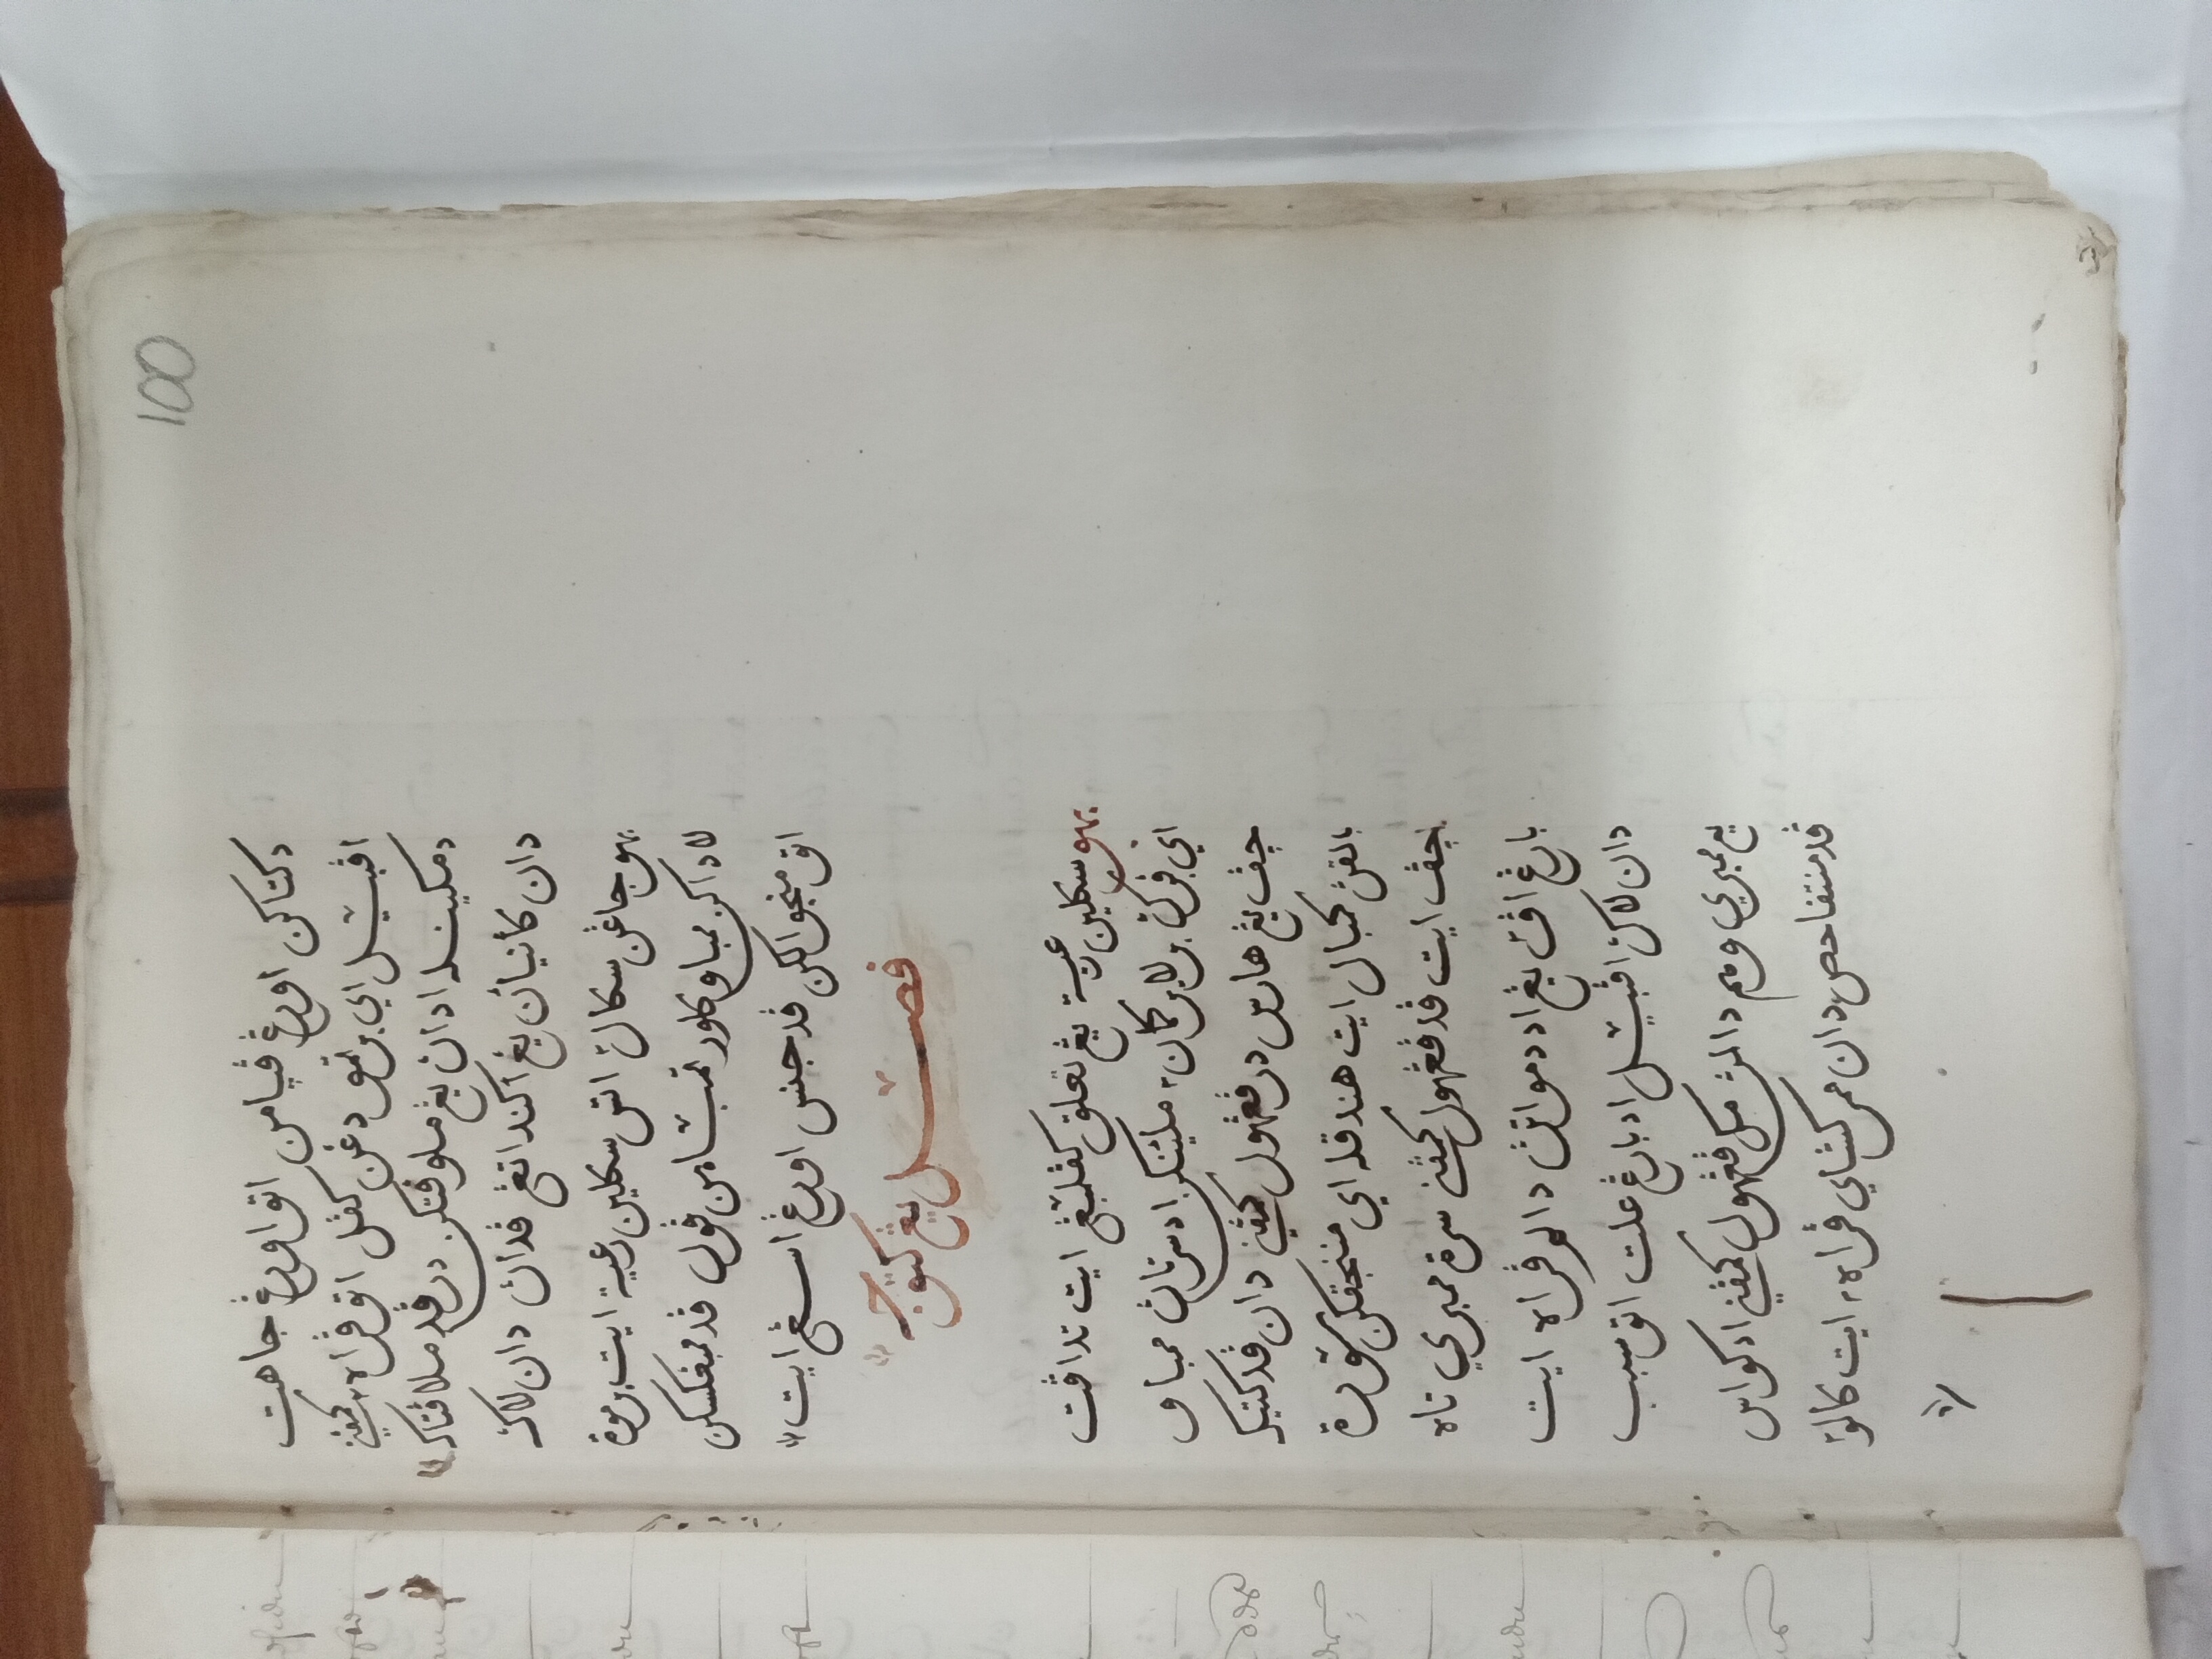 100
دكتاكن اورڠ ڤيامن اتو اورڠ جاهت
اڤبيل اي برتمو دڠن كڤل اتو ڤراهو كمڤني
دمكينله ادان يڠ ملوڤتكن درڤد ملاڤتاك
دان كأنيأن يڠ اكن داتڠ ڤدان دان لاڬ
بهو جاڠن سكال٢ اتس سكلين رعية ايت برموة
لادا كن ممباو كلور تمباݢ من ڤول ڤد ممبڠكسكن
اتو منجوالكن ڤد جنس اورڠ اسڠ ايت
فصل يڠ كتوجه
بهو سكلين رعية يڠ تعلق كڤلمبڠ ايت تداڤت
اي ڤرݢي برلاير كمان٢ ملينكن اد سرتاڽ ممباو
چڤ يڠ هارس در ڤڠهول كمڤني دان ڤد كتيك
بالقڽ كمبال ايت هندقله اي مننجقكن سورة
چڤ ايت ڤد ڤڠهول كمڤني سرة ممبري تاه
بارڠ اڤ٢ يڠ اد دمواتڽ دالم ڤراهو ايت
دان لاݢي اڤبيل اد بارڠ علت اتو سبب
يڠ ممبري وهم دالمڽ مك ڤڠهول كمڤني اد كواس
ڤد منتفاحص دان ممركشاي ڤراهو٢ ايت كالو٢